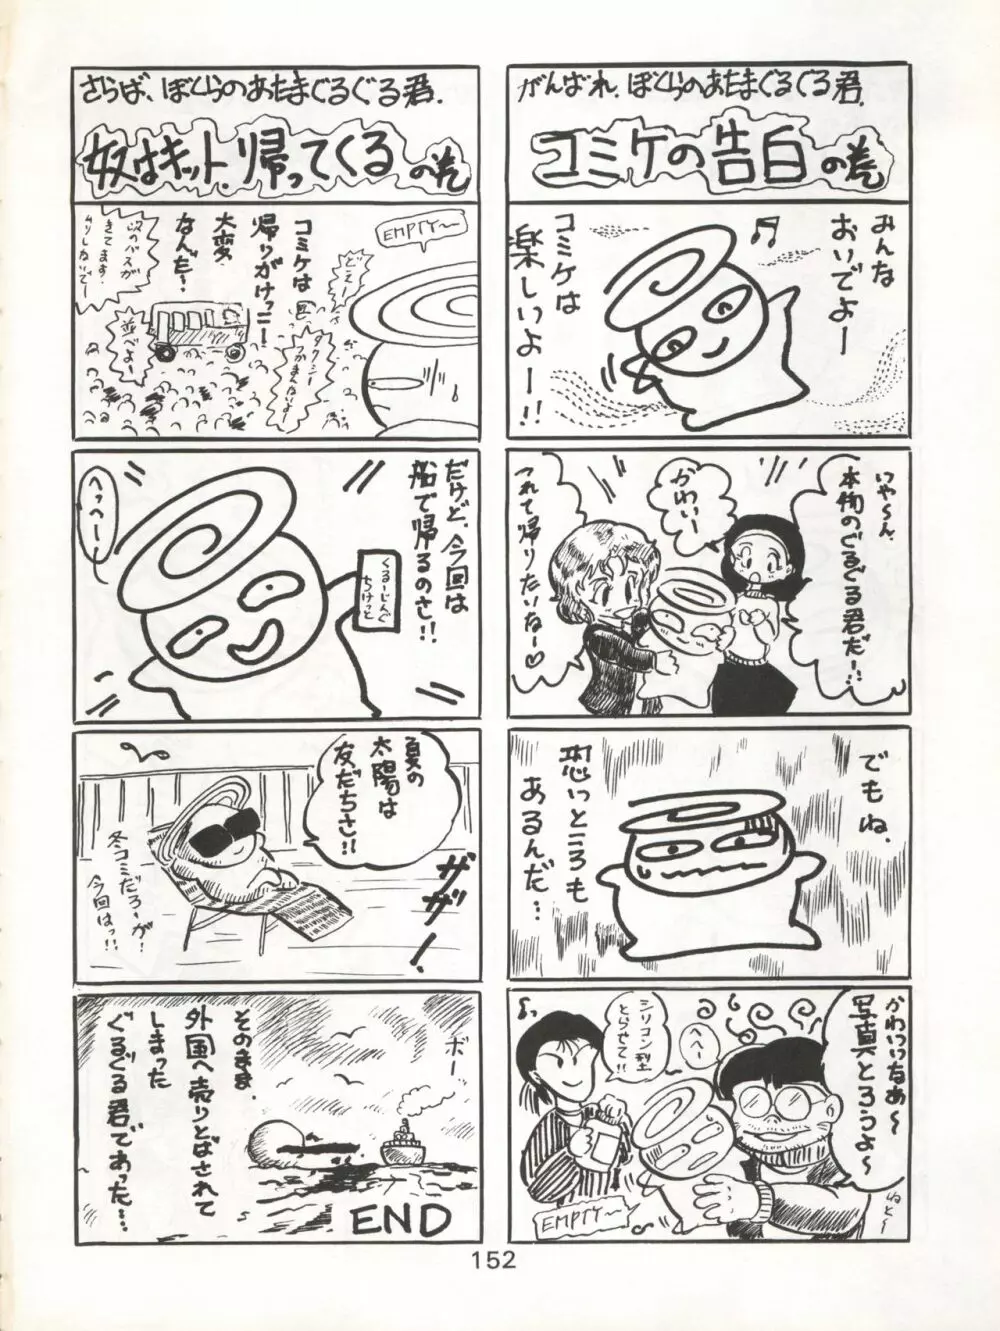 がんばれ、ぼくらのあたまぐるぐる君.
コミケの告白の巻
みんな
おいでよー
コミケは
楽しいよー!!
いや〜ん
本物のぐるぐる君だー!!
かわいー
つれて帰りたいなー♡
でもね、
恐いところも
あるんだ…
かわいいなあ〜
写真とろうよ〜
ねと〜
へへー
シリコン型
とらせて!!
EMPTY〜
さらば、ぼくらのあたまぐるぐる君.
奴はキット、帰ってくるの巻
EMPTY〜
どこー
コミケは
帰りがけっこー
大変
なんだ…
タクシー
つかまんないよー
次のバスが
きてます
並べよー
だけど、今回は
船で帰るのさ!!
くるーじんぐ
ちけっと
へっへー
夏の
太陽は
友だちさ!!
ザザー!
冬コミだろーが!
今回はっ!!
ボー
そのまま、
外国へ売りとばされて
しまった
ぐるぐる君であった…
END
152